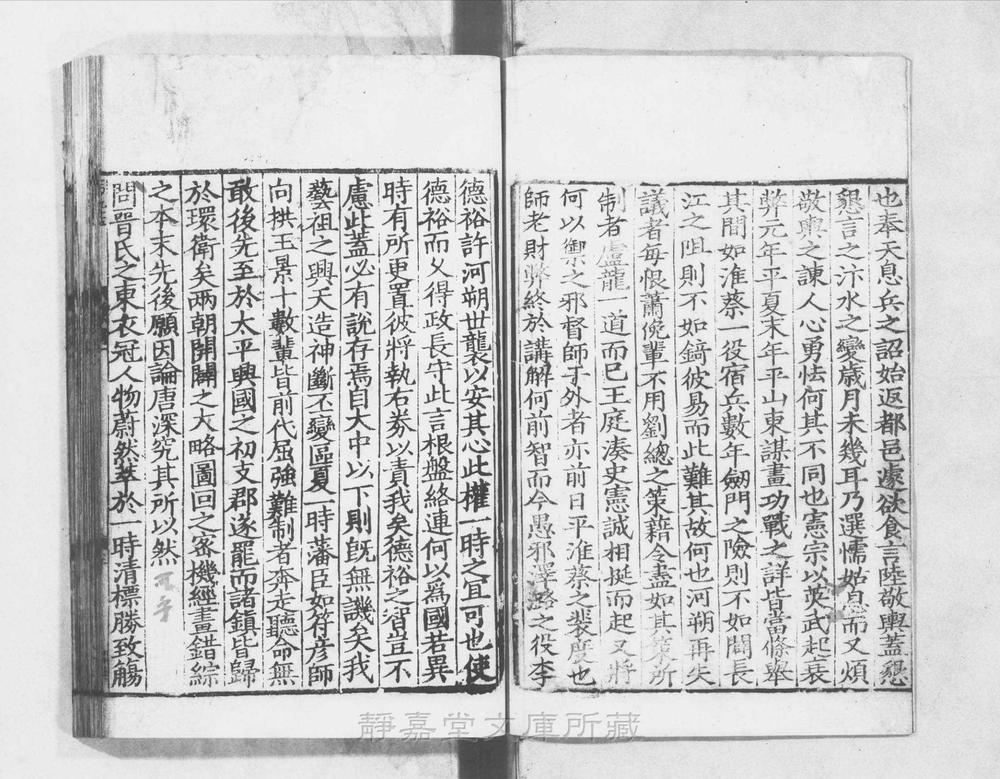 也奉天息兵之詔始返都邑遽欲食言陸敬輿蓋懇
懇言之汴水之變歲月未幾耳乃選懦姑息而又煩
敬輿之諫人心勇怯何其不同也憲宗以英武起衰
弊元年平夏末年平山東謀畫功戰之詳皆當條舉
其間如淮蔡一役宿兵數年劒門之險則不如閩長
江之阻則不如鎬彼易而此難其故何也河朔再失
議者每恨蕭俛輩不用劉總之策藉令盡如其策所
制者盧龍一道而已王庭湊史憲誠相挻而起又將
何以禦之邪督師于外者亦前日平淮蔡之裴度也
師老財弊終於講解何前智而今愚邪澤潞之役李
德裕許河朔世襲以安其心此權一時之宜可也使
德裕而乆得政長守此言根盤絡連何以爲國若異
時有所更置彼將執右劵以責我矣德裕之智豈不
慮此蓋必有說存焉自大中以下則旣無譏矣我
藝祖之興天造神斷丕變區夏一時藩臣如符彦師
向拱王景十數輩皆前代屈強難制者奔走聽命無
敢後先至於太平興國之初支郡遂罷而諸鎭皆歸
於環衛矣兩朝開闢之大略圖回之審機經畫錯綜
之本末先後願因論唐深究其所以然
問晉氏之東衣冠人物蔚然萃於一時清標勝致觴
靜嘉堂文庫所藏